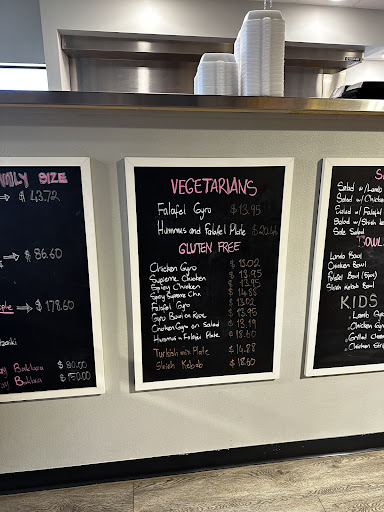 MILY SIZE
→ $ 43.72
→ $ 86.60
→ $ 178.60
$ 80.00
$ 150.00
VEGETARIANS
Falafel Gyro $ 13.95
Hummus and Falafel Plate $ 20.46
GLUTEN FREE
Chicken Gyro $ 13.02
Supreme Chicken $ 13.95
Spicy Chicken $ 13.95
Spicy Supreme Chx $ 14.88
Falafel Gyro $ 13.02
Gyro Bowl on Rice $ 13.95
Chicken Gyro on Salad $ 13.19
Hummus n Falafel Plate $ 18.60
Turkish mix Plate $ 14.88
Shish Kebab $ 18.60
Salad w/Lamb
Salad w/Chicken
Salad w/Falafel
Salad w/Shish
Side Salad
BOWL
Lamb Bowl
Chicken Bowl
Falafel Bowl (5pcs)
Shish Kebab Bowl
KIDS
Lamb Gyro
Chicken Gyro
Grilled Cheese
Chicken Strip